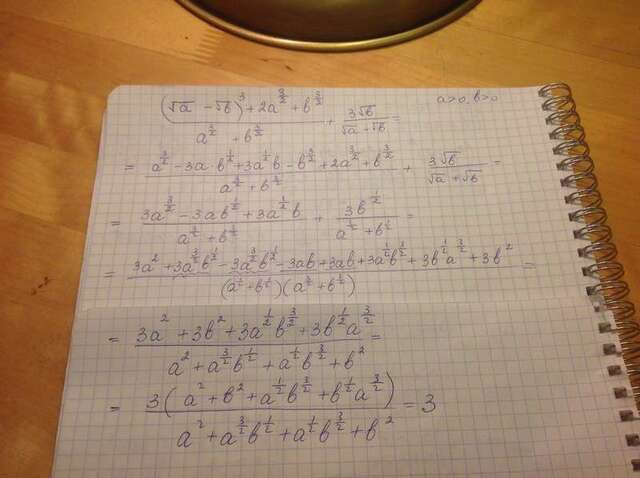 a>0, b>0
((√a − √b)³ + 2a^(3/2) + b^(3/2)) / (a^(3/2) + b^(3/2)) + 3√b / (√a + √b) =
= (a^(3/2) − 3a b^(1/2) + 3a^(1/2) b − b^(3/2) + 2a^(3/2) + b^(3/2)) / (a^(3/2) + b^(3/2)) + 3√b / (√a + √b) =
= (3a^(3/2) − 3ab^(1/2) + 3a^(1/2) b) / (a^(3/2) + b^(3/2)) + 3b^(1/2) / (a^(1/2) + b^(1/2)) =
= (3a² + 3a^(3/2) b^(1/2) − 3a^(3/2) b^(1/2) − 3ab + 3ab + 3a^(1/2) b^(3/2) + 3b^(1/2) a^(3/2) + 3b²) / ((a^(1/2) + b^(1/2)) (a^(3/2) + b^(3/2))) =
= (3a² + 3b² + 3a^(1/2) b^(3/2) + 3b^(1/2) a^(3/2)) / (a² + a^(3/2) b^(1/2) + a^(1/2) b^(3/2) + b²) =
= 3(a² + b² + a^(1/2) b^(3/2) + b^(1/2) a^(3/2)) / (a² + a^(3/2) b^(1/2) + a^(1/2) b^(3/2) + b²) = 3